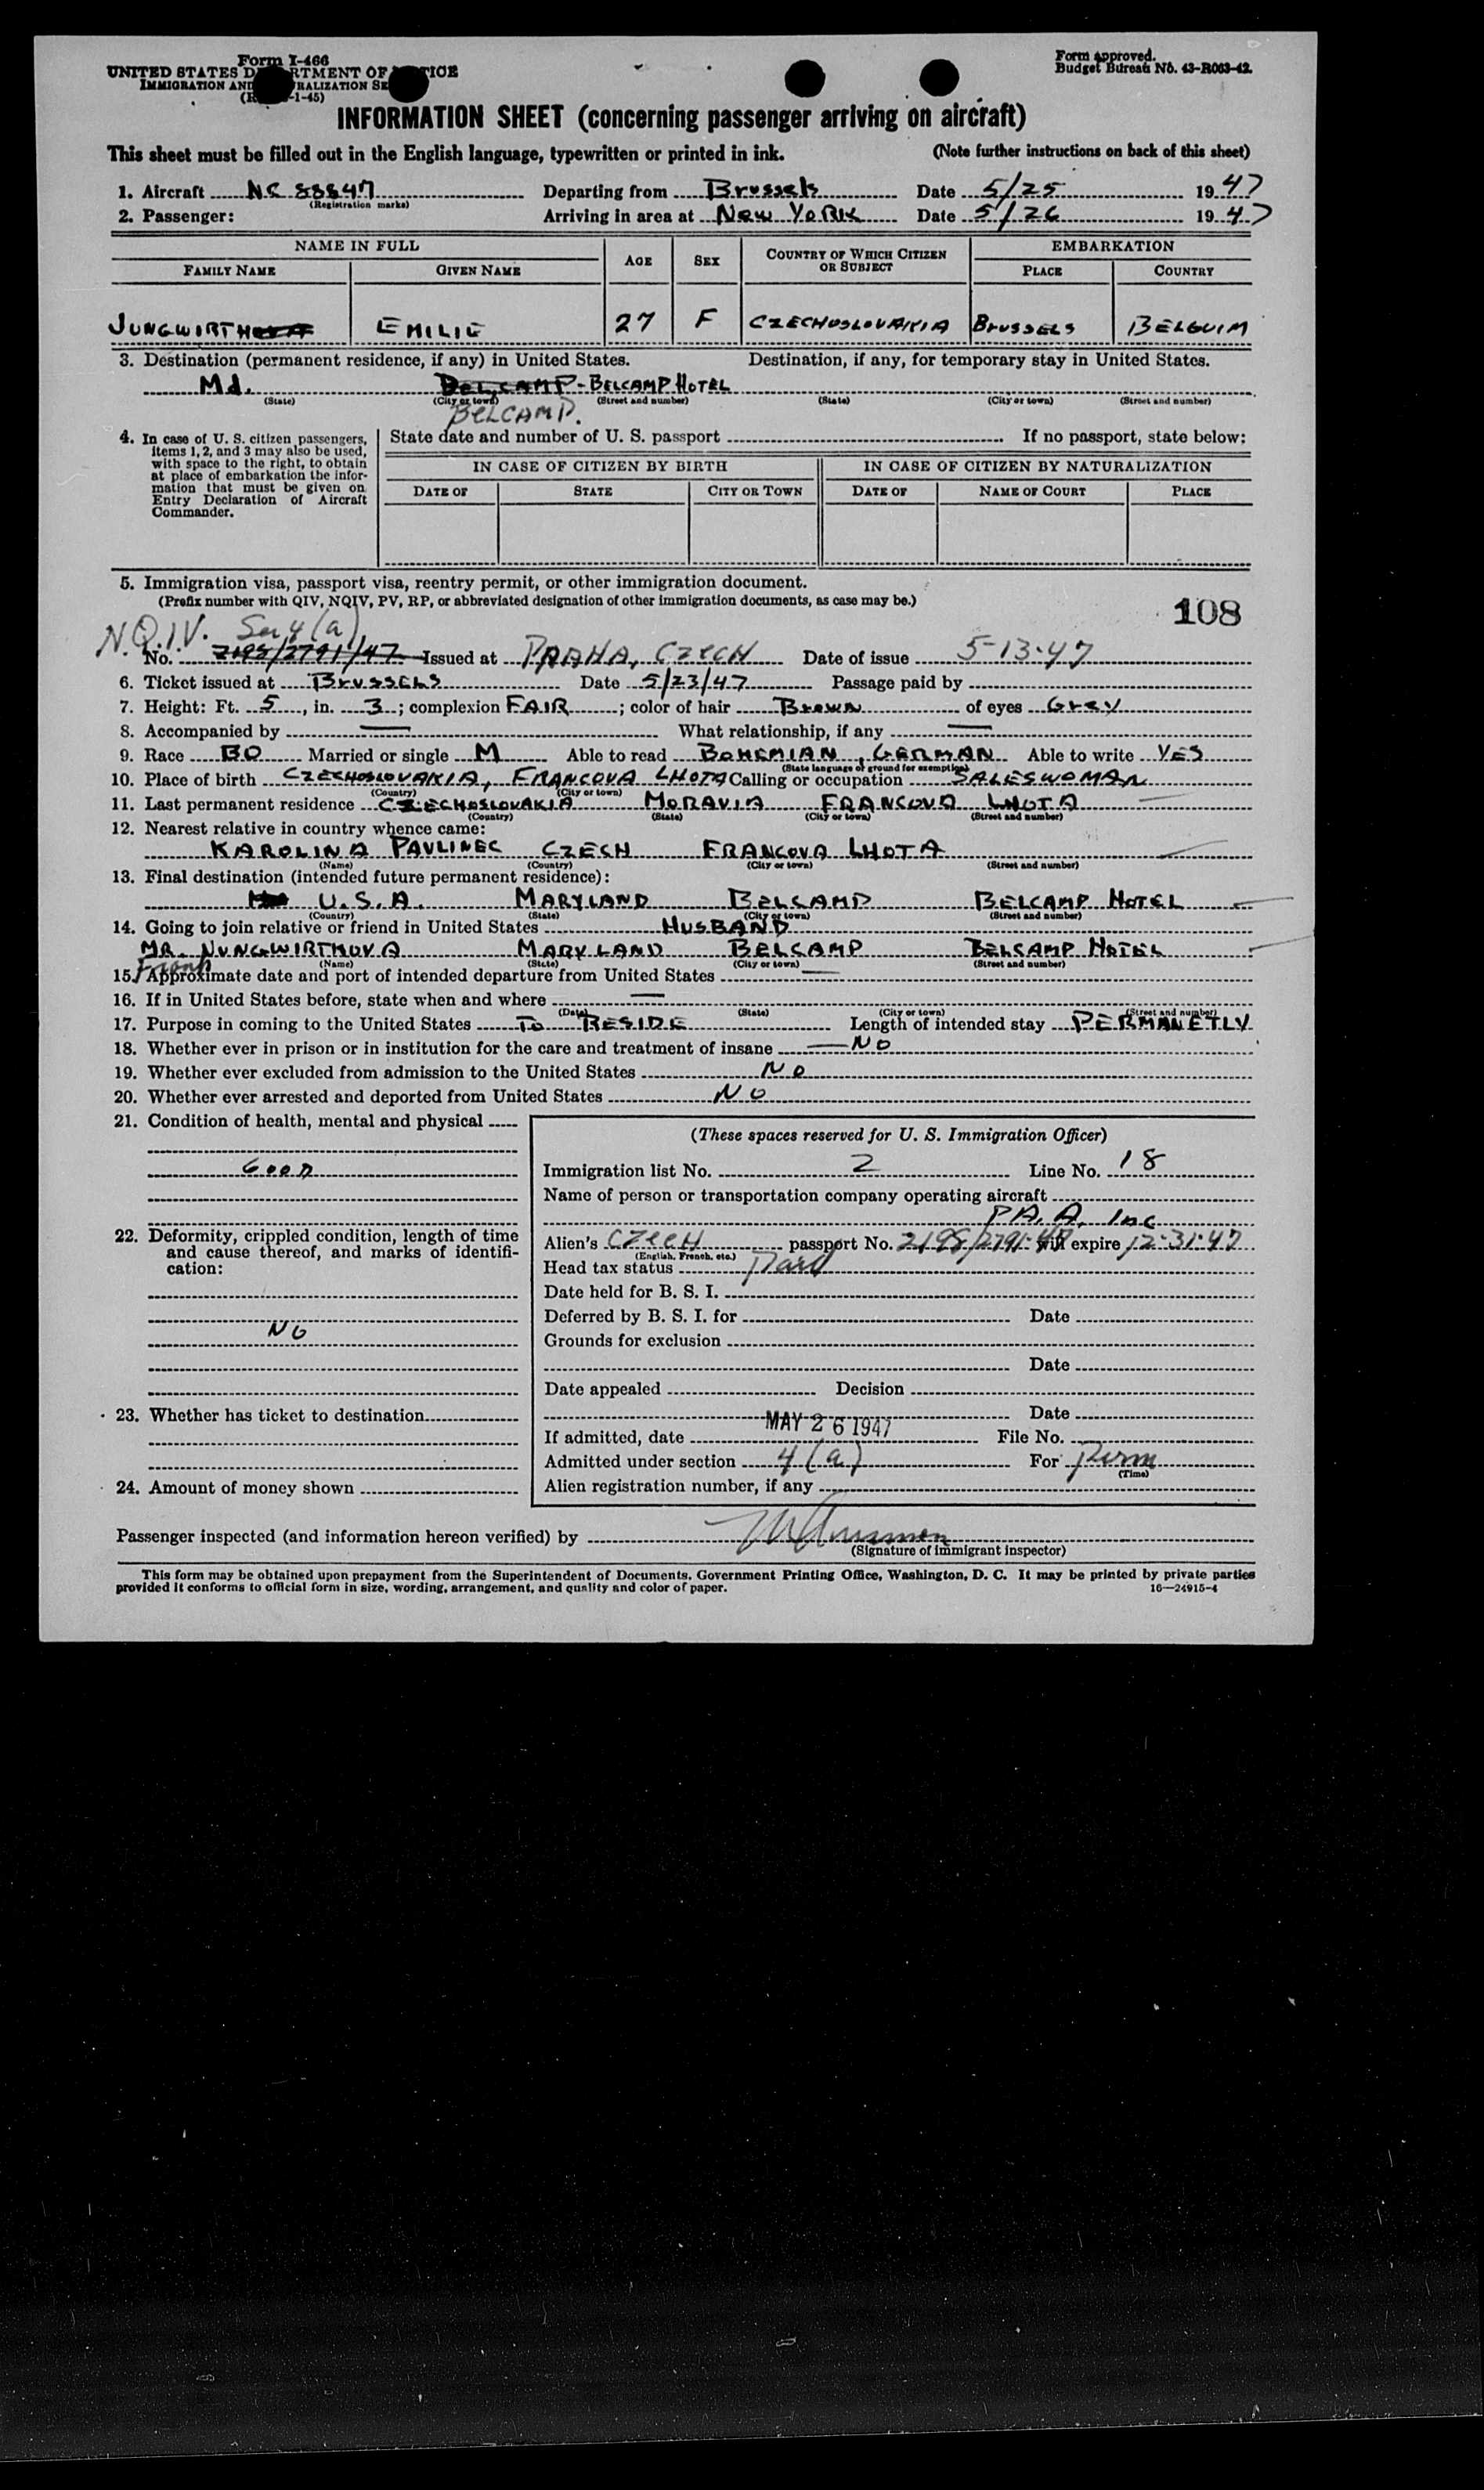 Form I-466
UNITED STATES D RTMENT OF ICE
IMMIGRATION AND RALIZATION SE
(R -1-45)
Form approved.
Budget Bureau No. 43-R063-42.
INFORMATION SHEET (concerning passenger arriving on aircraft)
This sheet must be filled out in the English language, typewritten or printed in ink. (Note further instructions on back of this sheet)
1. Aircraft NC 88847 Departing from Brussels Date 5/25 1947
(Registration marks)
2. Passenger: Arriving in area at NEW YORK Date 5/26 1947
NAME IN FULL AGE SEX COUNTRY OF WHICH CITIZEN OR SUBJECT EMBARKATION
FAMILY NAME GIVEN NAME PLACE COUNTRY
JUNGWIRTH EMILIE 27 F CZECHOSLOVAKIA BRUSSELS BELGUIM
3. Destination (permanent residence, if any) in United States. Destination, if any, for temporary stay in United States.
Md. BELCAMP - BELCAMP HOTEL
(State) (City or town) (Street and number) (State) (City or town) (Street and number)
BELCAMP.
4. In case of U. S. citizen passengers, items 1, 2, and 3 may also be used, with space to the right, to obtain at place of embarkation the information that must be given on Entry Declaration of Aircraft Commander.
State date and number of U. S. passport If no passport, state below:
IN CASE OF CITIZEN BY BIRTH IN CASE OF CITIZEN BY NATURALIZATION
DATE OF STATE CITY OR TOWN DATE OF NAME OF COURT PLACE
5. Immigration visa, passport visa, reentry permit, or other immigration document.
(Prefix number with QIV, NQIV, PV, RP, or abbreviated designation of other immigration documents, as case may be.)
108
N.Q.I.V. Sec 4 (a)
No. 2195/2791/47 Issued at PRAHA, CZECH Date of issue 5-13-47
6. Ticket issued at BRUSSELS Date 5/23/47 Passage paid by
7. Height: Ft. 5, in. 3; complexion FAIR; color of hair Brown of eyes GREY
8. Accompanied by — What relationship, if any —
9. Race BO Married or single M Able to read BOHEMIAN, GERMAN Able to write YES
(State language or ground for exemption)
10. Place of birth CZECHOSLOVAKIA, FRANCOVA LHOTA Calling or occupation SALESWOMAN
(Country) (City or town)
11. Last permanent residence CZECHOSLOVAKIA MORAVIA FRANCOVA LHOTA
(Country) (State) (City or town) (Street and number)
12. Nearest relative in country whence came:
KAROLINA PAVLINEC CZECH FRANCOVA LHOTA
(Name) (Country) (City or town) (Street and number)
13. Final destination (intended future permanent residence):
U.S.A. MARYLAND BELCAMP BELCAMP HOTEL
(Country) (State) (City or town) (Street and number)
14. Going to join relative or friend in United States HUSBAND
MR. JUNGWIRTHOVA MARYLAND BELCAMP BELCAMP HOTEL
(Name) (State) (City or town) (Street and number)
Frank
15. Approximate date and port of intended departure from United States —
16. If in United States before, state when and where —
(Date) (State) (City or town) (Street and number)
17. Purpose in coming to the United States TO RESIDE Length of intended stay PERMANETLY
18. Whether ever in prison or in institution for the care and treatment of insane — NO
19. Whether ever excluded from admission to the United States NO
20. Whether ever arrested and deported from United States NO
21. Condition of health, mental and physical
GOOD
22. Deformity, crippled condition, length of time and cause thereof, and marks of identification:
NO
23. Whether has ticket to destination
24. Amount of money shown
(These spaces reserved for U. S. Immigration Officer)
Immigration list No. 2 Line No. 18
Name of person or transportation company operating aircraft
P.A.A. Inc
Alien's CZECH passport No. 2195/2791-47 will expire 12-31-47
(English, French, etc.)
Head tax status Paid
Date held for B. S. I.
Deferred by B. S. I. for Date
Grounds for exclusion
Date
Date appealed Decision
Date
If admitted, date MAY 26 1947 File No.
Admitted under section 4 (a) For Perm
(Time)
Alien registration number, if any
Passenger inspected (and information hereon verified) by
(Signature of immigrant inspector)
This form may be obtained upon prepayment from the Superintendent of Documents, Government Printing Office, Washington, D. C. It may be printed by private parties
provided it conforms to official form in size, wording, arrangement, and quality and color of paper.
16—24915-4